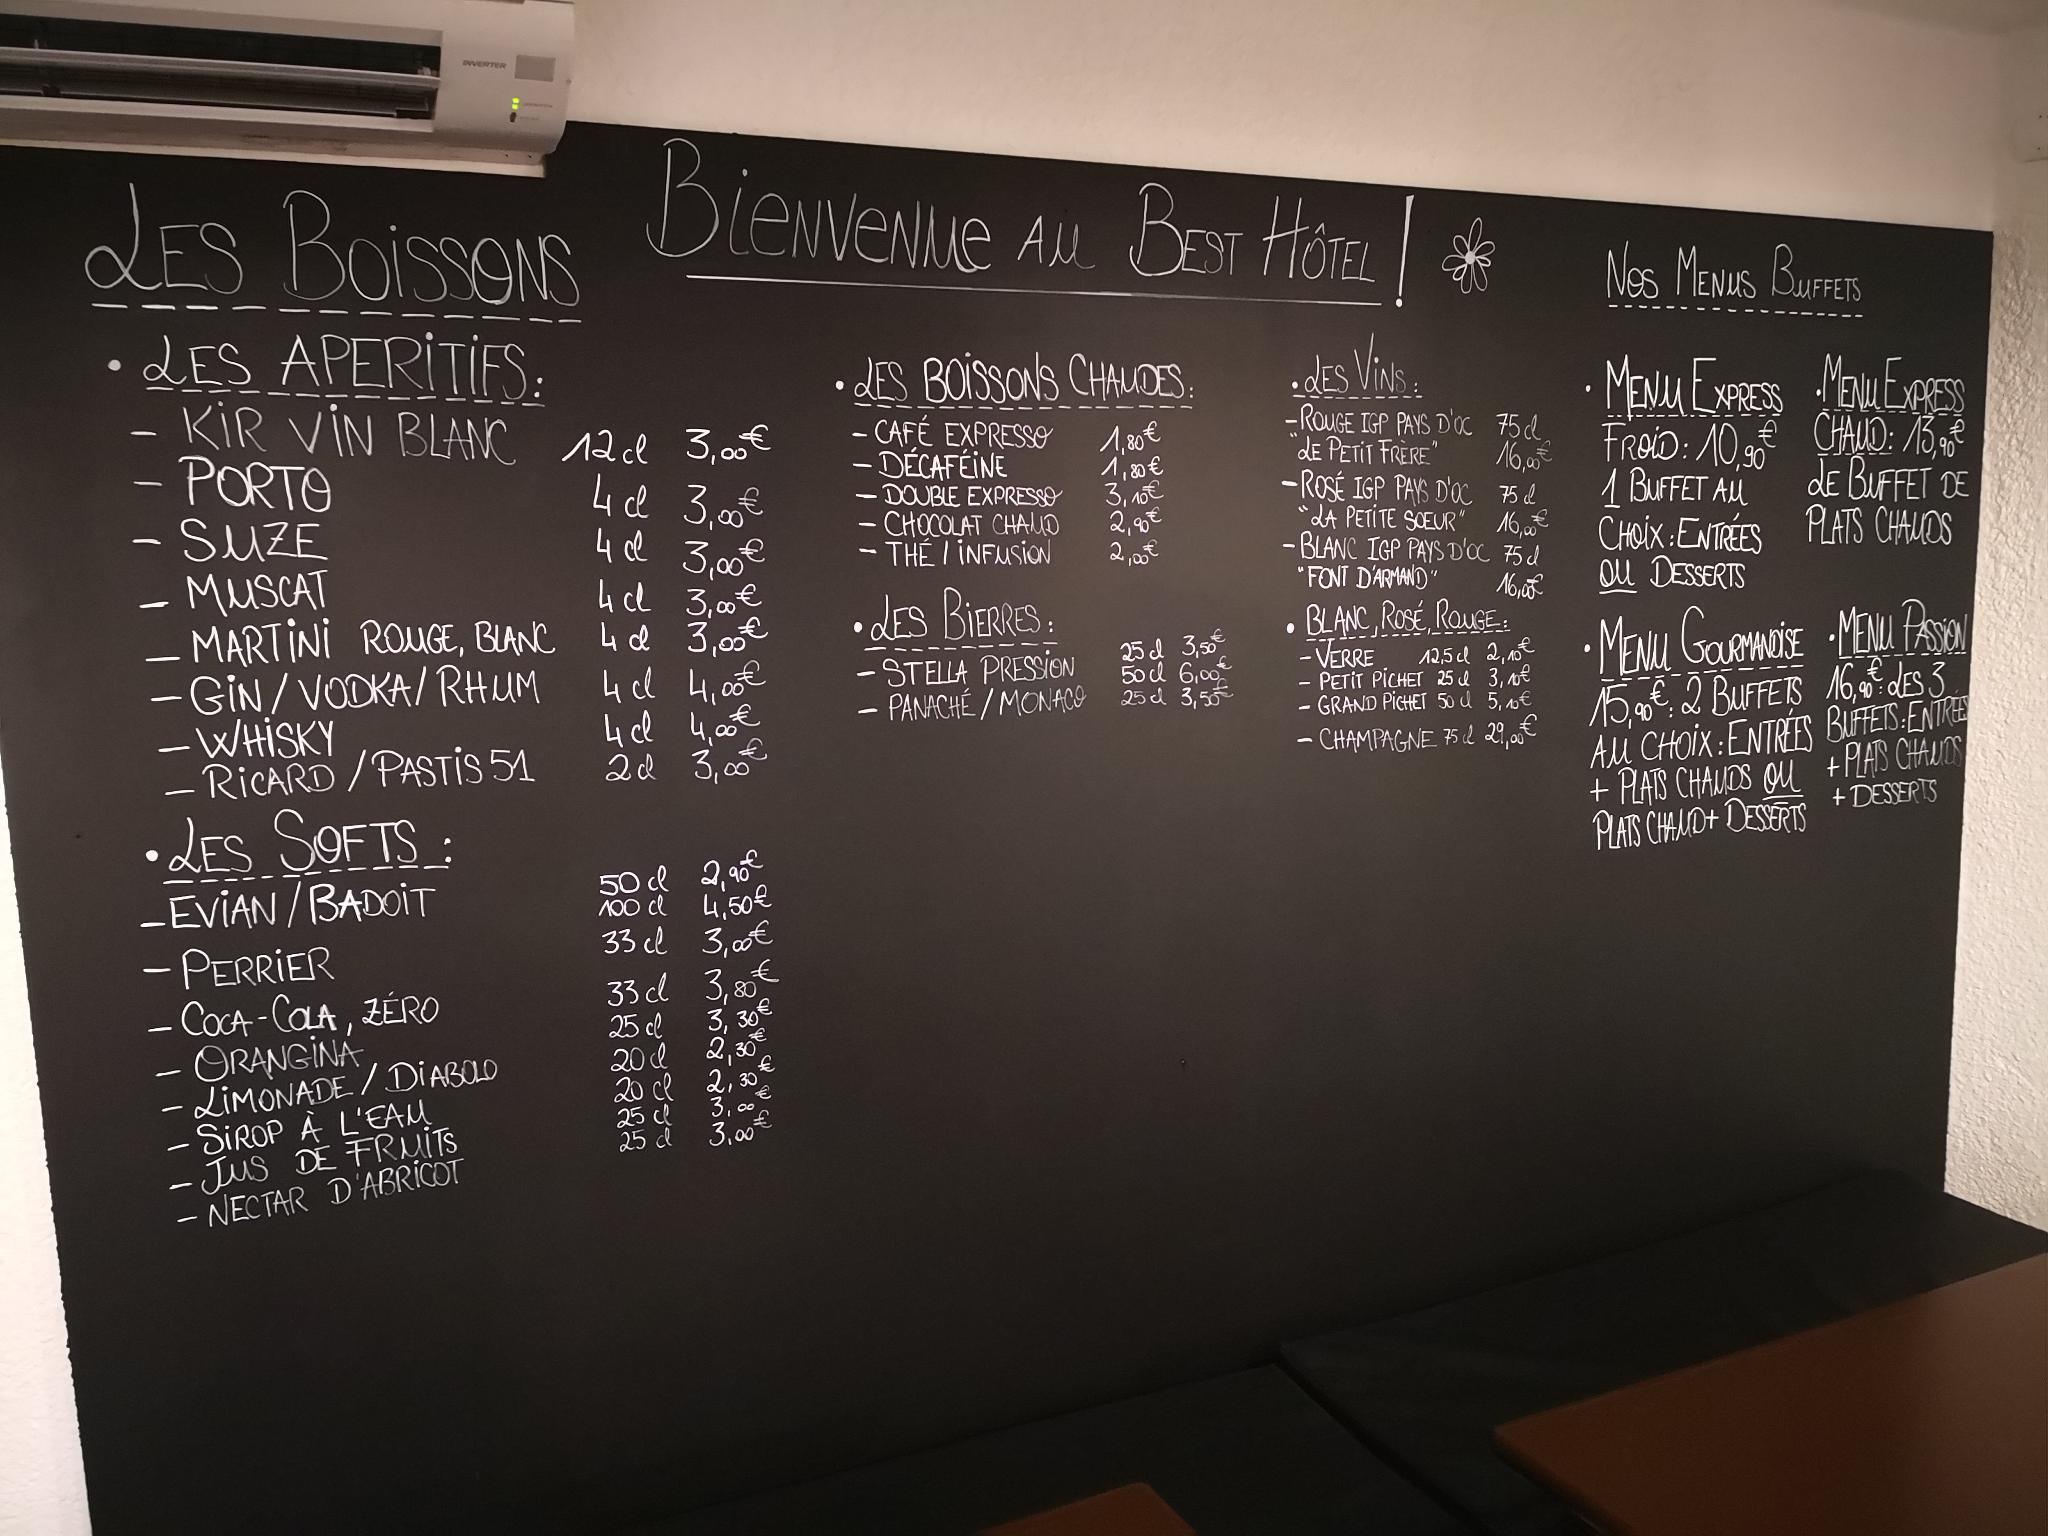 INVERTER
BIENVENUE AU BEST HÔTEL !
LES BOISSONS
• LES APERITIFS :
- KIR VIN BLANC 12 cl 3,00€
- PORTO 4 cl 3,00€
- SUZE 4 cl 3,00€
- MUSCAT 4 cl 3,00€
- MARTINI ROUGE, BLANC 4 cl 3,00€
- GIN / VODKA / RHUM 4 cl 4,00€
- WHISKY 4 cl 4,00€
- RICARD / PASTIS 51 2 cl 3,00€
• LES SOFTS :
- EVIAN / BADOIT 50 cl 2,90€
100 cl 4,50€
- PERRIER 33 cl 3,00€
- COCA-COLA, ZÉRO 33 cl 3,80€
- ORANGINA 25 cl 3,30€
- LIMONADE / DIABOLO 20 cl 2,30€
- SIROP À L'EAU 20 cl 2,30€
- JUS DE FRUITS 25 cl 3,00€
- NECTAR D'ABRICOT 25 cl 3,00€
• LES BOISSONS CHAUDES :
- CAFÉ EXPRESSO 1,80€
- DÉCAFÉINE 1,80€
- DOUBLE EXPRESSO 3,10€
- CHOCOLAT CHAUD 2,90€
- THÉ / INFUSION 2,00€
• LES BIERRES :
25 cl 3,50€
- STELLA PRESSION 50 cl 6,00€
- PANACHÉ / MONACO 25 cl 3,50€
• LES VINS :
- ROUGE IGP PAYS D'OC 75 cl
"LE PETIT FRÈRE" 16,00€
- ROSÉ IGP PAYS D'OC 75 cl
"LA PETITE SOEUR" 16,00€
- BLANC IGP PAYS D'OC 75 cl
"FONT D'ARMAND" 16,00€
• BLANC, ROSÉ, ROUGE :
- VERRE 12,5 cl 2,10€
- PETIT PICHET 25 cl 3,10€
- GRAND PICHET 50 cl 5,10€
- CHAMPAGNE 75 cl 29,00€
NOS MENUS BUFFETS
• MENU EXPRESS
FROID : 10,90€
1 BUFFET AU
CHOIX : ENTRÉES
OU DESSERTS
• MENU EXPRESS
CHAUD : 13,90€
LE BUFFET DE
PLATS CHAUDS
• MENU GOURMANDISE
15,90€ : 2 BUFFETS
AU CHOIX : ENTRÉES
+ PLATS CHAUDS OU
PLATS CHAUD + DESSERTS
• MENU PASSION
16,90€ : LES 3
BUFFETS : ENTRÉES
+ PLATS CHAUDS
+ DESSERTS